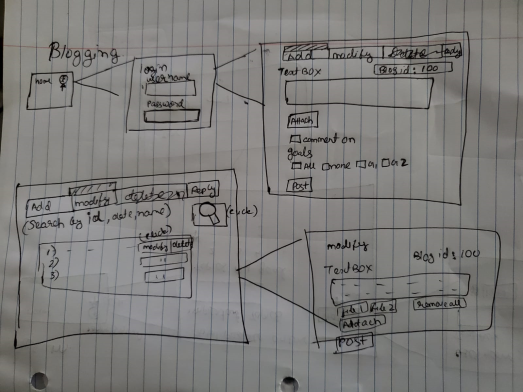 Blogging
home
login
username
Password
Add modify Reply
Text BOX
Blog id: 100
Attach
comment on
goals
All none G1 G2
Post
Add modify delete Reply
(Search by id, date, name)
(click)
(click)
1) - - modify delete
2)
3)
modify
Blog id: 100
Text BOX
File 1 File 2 Remove all
Attach
POST